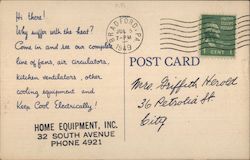 Hi there!
Why suffer with the heat?
Come in and see our complete
line of fans, air circulators,
kitchen ventilators, other
cooling equipment and
Keep Cool Electrically!
HOME EQUIPMENT, INC.
32 SOUTH AVENUE
PHONE 4921
BRADFORD, PA.
JUL 5
7-PM
1949
1 CENT 1
POST CARD
Mrs. Griffith Herold
36 Petrolia St
City